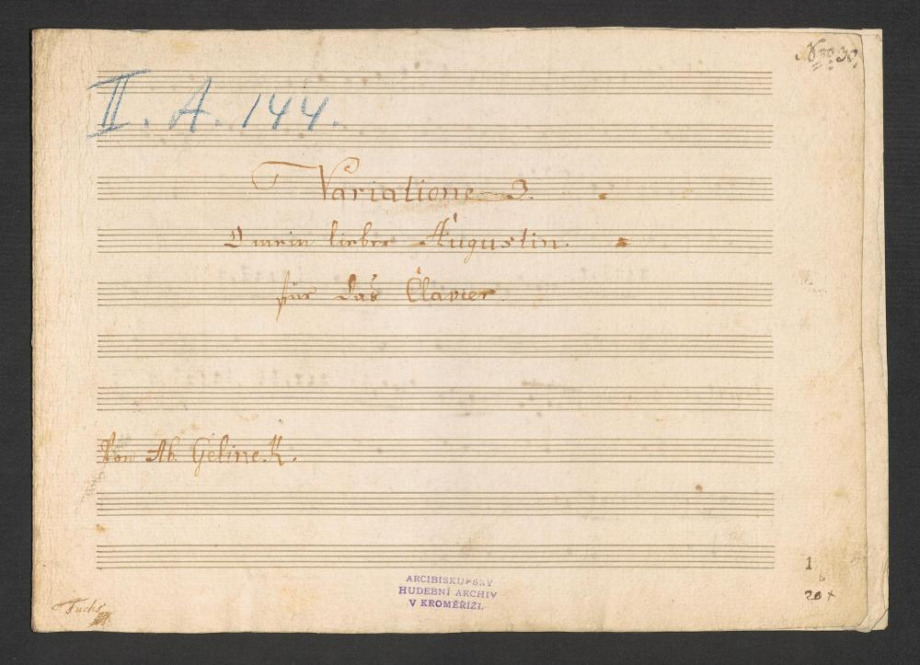 Nro 30.
II. A. 144.
Variatione 3.
O mein lieber Augustin.
für das Clavier
Von Ab. Gelinek.
1
20 x
ARCIBISKUPSKÝ
HUDEBNÍ ARCHIV
V KROMĚŘÍŽI.
Fuchs